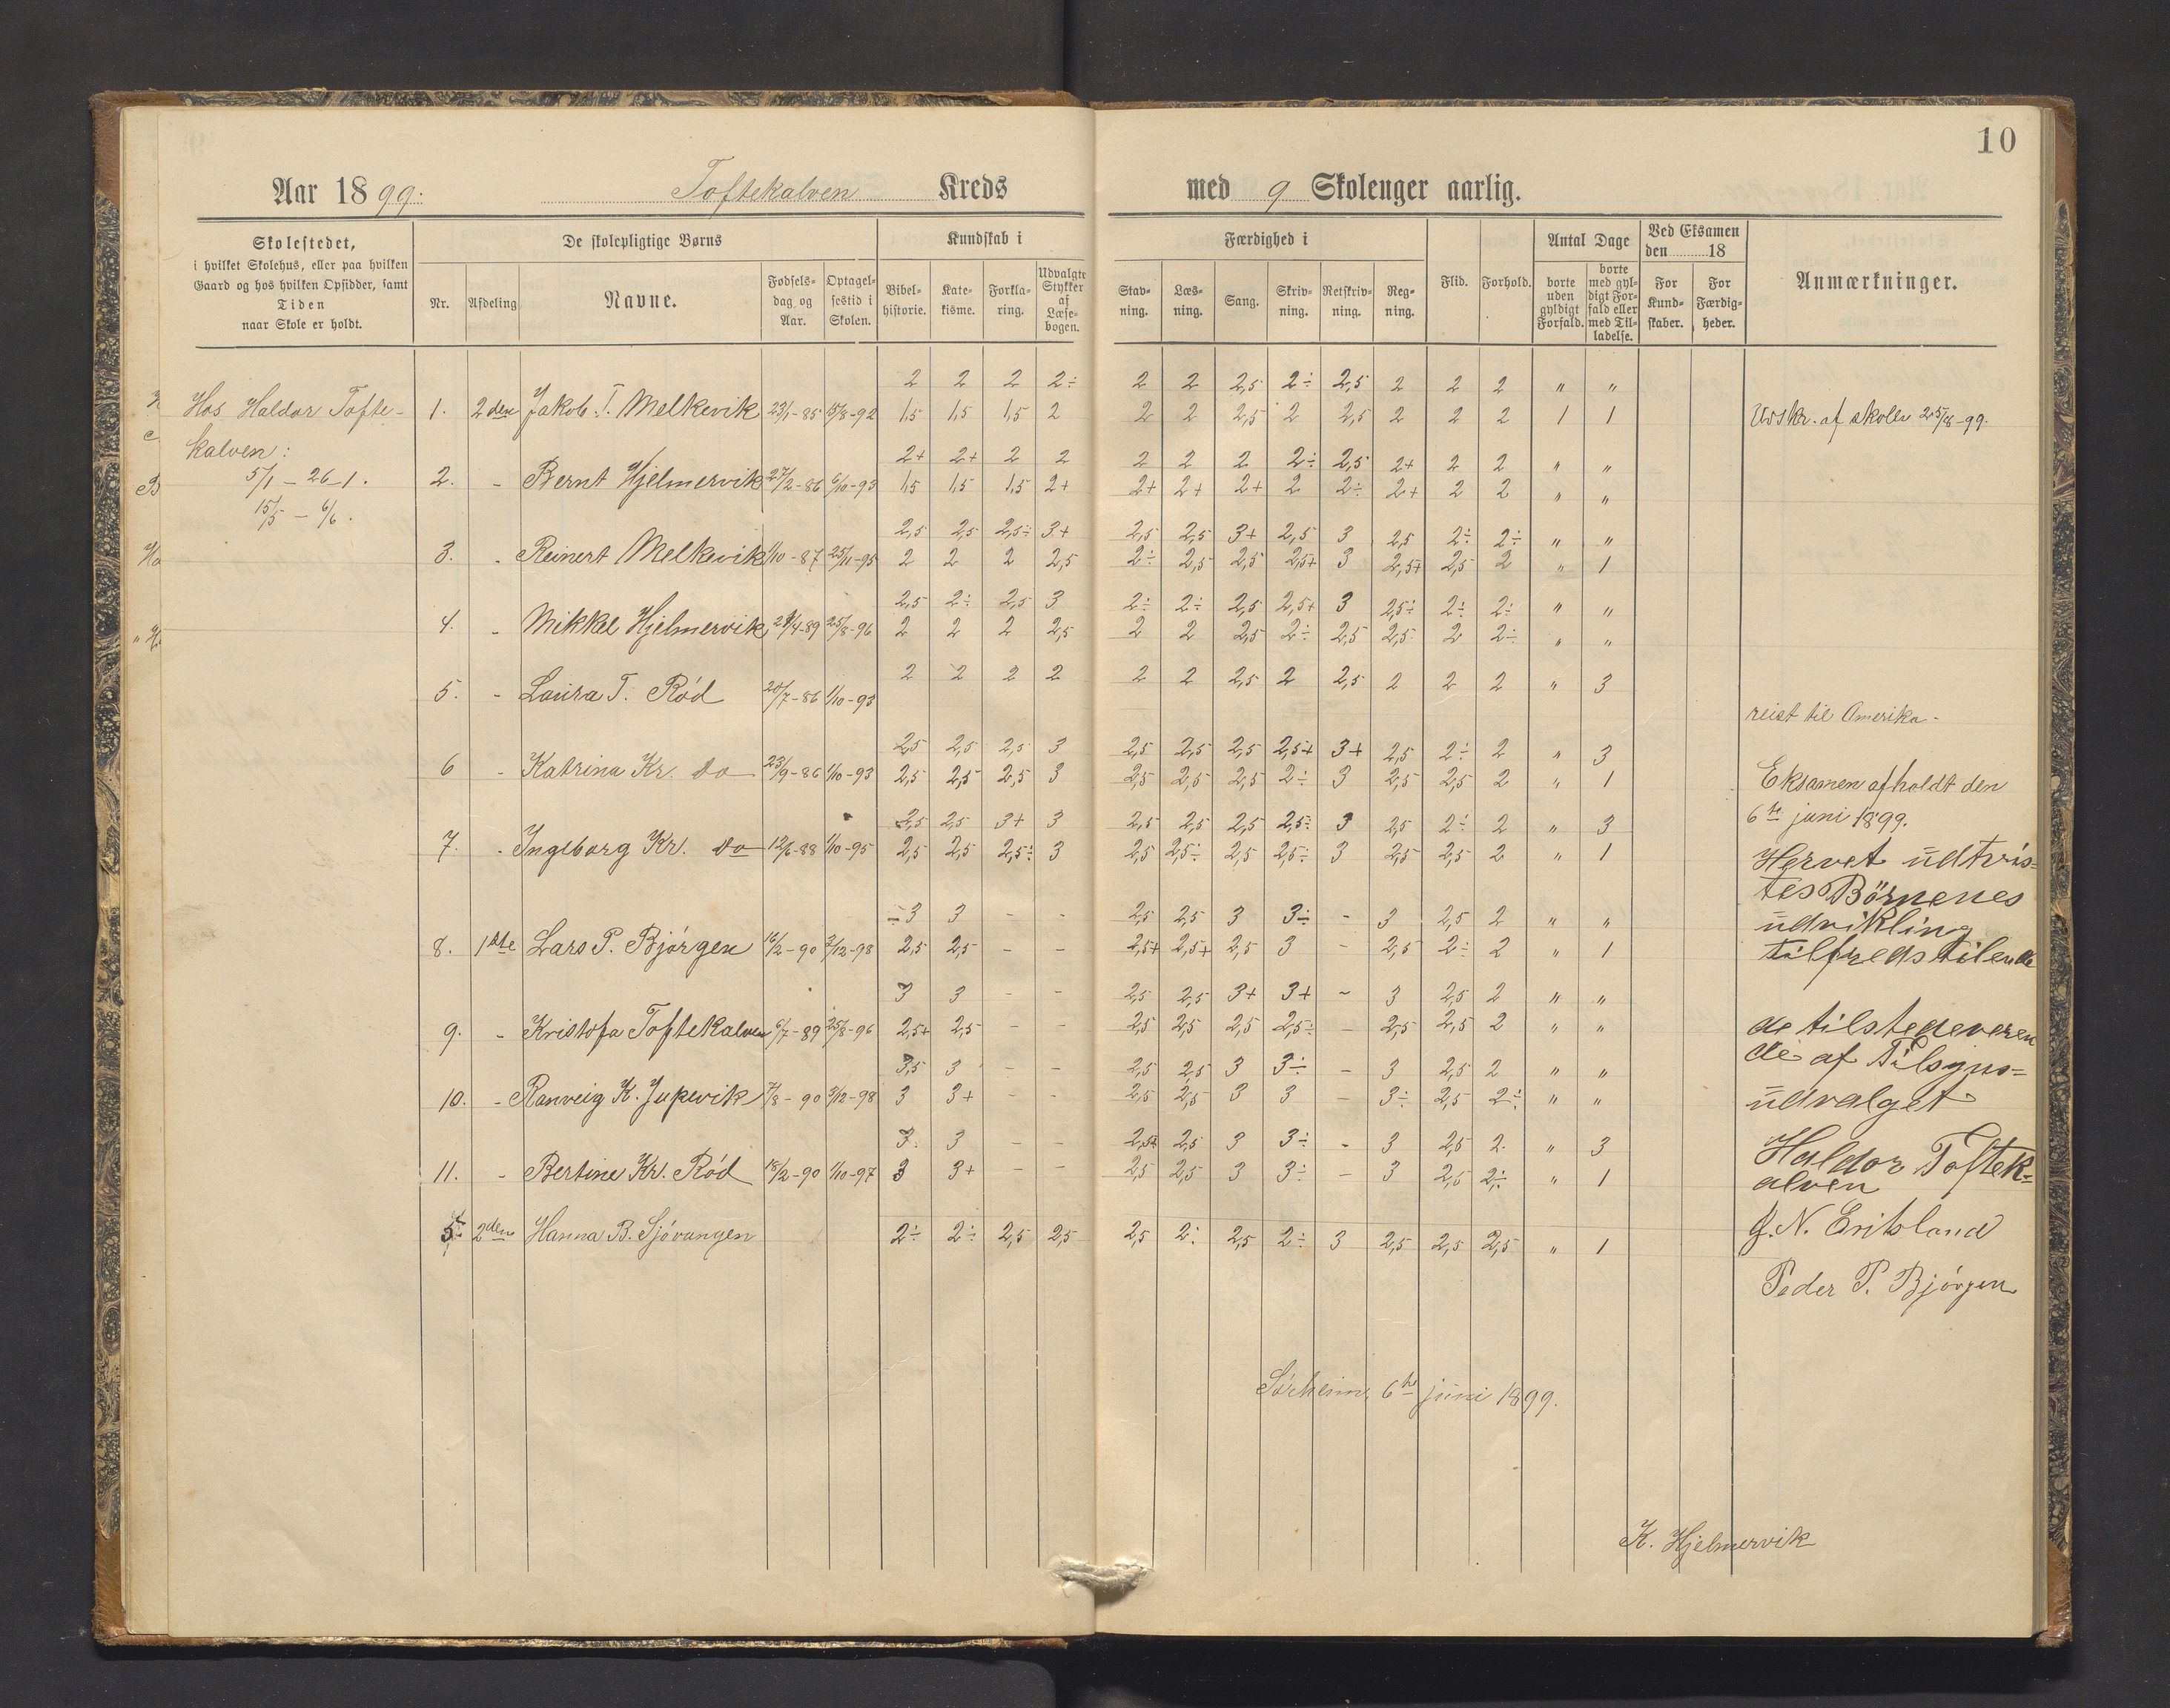 10
Aar 1899. Toftekalven Kreds med 9 Skolenger aarlig.
Skolestedet, i hvilket Skolehus, eller paa hvilken Gaard og hos hvilken Opsidder, samt Tiden naar Skole er holdt.
De skolepligtige Børns
Nr. Afdeling Navne. Fødsels-dag og Aar. Optagel-sestid i Skolen.
Kundskab i
Bibel-historie. Kate-kisme. Forkla-ring. Udvalgte Stykker af Læse-bogen.
Færdighed i
Stav-ning. Læs-ning. Sang. Skriv-ning. Retskriv-ning. Reg-ning.
Flid. Forhold.
Antal Dage
borte uden gyldigt Forfald. borte med gyl-digt For-fald eller med Til-ladelse.
Ved Eksamen den 18
For Kund-skaber. For Færdig-heder.
Anmærkninger.
Hos Haldor Tofte-
kalven:
5/1 – 26-1.
15/5 – 6/6.
2 2 2 2÷ 2 2 2,5 2÷ 2,5 2 2 2 " "
1. 2den Jakob T. Melkevik 23/1-85 15/8-92 1,5 1,5 1,5 2 2 2 2,5 2 2,5 2 2 2 1 1 Udskr. af skolen 25/8-99.
2+ 2+ 2 2 2 2 2 2÷ 2,5 2+ 2 2 " "
2. - Bernt Hjelmervik 27/2-86 6/10-93 1,5 1,5 1,5 2+ 2+ 2+ 2+ 2 2÷ 2+ 2 2 " "
2,5 2,5 2,5÷ 3+ 2,5 2,5 3+ 2,5 3 2,5 2÷ 2÷ " "
3. - Reinert Melkevik 1/10-87 25/11-95 2 2 2 2,5 2÷ 2,5 2,5 2,5+ 3 2,5+ 2,5 2 " 1
2,5 2÷ 2,5 3 2÷ 2÷ 2,5 2,5+ 3 2,5÷ 2÷ 2÷ " "
4. - Mikkel Hjelmervik 29/4-89 25/8-96 2 2 2 2,5 2 2 2,5 2÷ 2,5 2,5 2 2÷ " "
2 2 2 2 2 2 2,5 2 2,5 2 2 2 " 3
5. - Laura T. Rød 20/7-86 1/10-93
reist til Amerika.
2,5 2,5 2,5 3 2,5 2,5 2,5 2,5+ 3+ 2,5 2÷ 2 " 3
6 - Katrina Kr. do 23/9-86 1/10-93 2,5 2,5 2,5 3 2,5 2,5 2,5 2÷ 3 2,5 2,5 2 " 1
2,5 2,5 3+ 3 2,5 2,5 2,5 2,5÷ 3 2,5 2÷ 2 " 3
7. - Ingeborg Kr. do 12/6-88 1/10-95 2,5 2,5 2,5÷ 3 2,5 2,5÷ 2,5 2,5÷ 3 2,5 2,5 2 " 1
÷3 3 - - 2,5 2,5 3 3÷ - 3 2,5 2 " "
8. 1ste Lars P. Bjørgen 16/2-90 3/12-98 2,5 2,5 - - 2,5+ 2,5+ 2,5 3 - 2,5 2÷ 2 " 1
3 3 - - 2,5 2,5 3+ 3+ - 3 2,5 2 " "
9. - Kristofa Toftekalven 6/7-89 25/8-96 2,5+ 2,5 - - 2,5 2,5 2,5 2,5÷ - 2,5 2,5 2 " "
3,5 3 - - 2,5 2,5 3 3÷ - 3 2,5 2 " "
10. - Ranveig K. Jupevik 7/8-90 3/12-98 3 3+ - - 2,5 2,5 3 3 - 3÷ 2,5 2÷ " "
3. 3 - - 2,5+ 2,5 3 3÷ - 3 2,5 2. " 3
11. - Bertine Kr. Rød 18/2-90 1/10-97 3 3+ - - 2,5 2,5 3 3÷ - 3 2,5 2÷ " 1
5. 2den Hanna B. Sjøvangen 2÷ 2÷ 2,5 2,5 2,5 2÷ 2,5 2÷ 3 2,5 2,5 2,5 " 1
Eksamen afholdt den
6te juni 1899.
Hervet udtris=
tes Börnenes
udvikling
tilfredstilende
de tilstedeveren
de af Tilsyns=
udvalget
Haldor Toftek=
alven
J. N. Eritsland
Peder P. Bjørgen
Sørheim, 6te juni 1899.
K. Hjelmervik